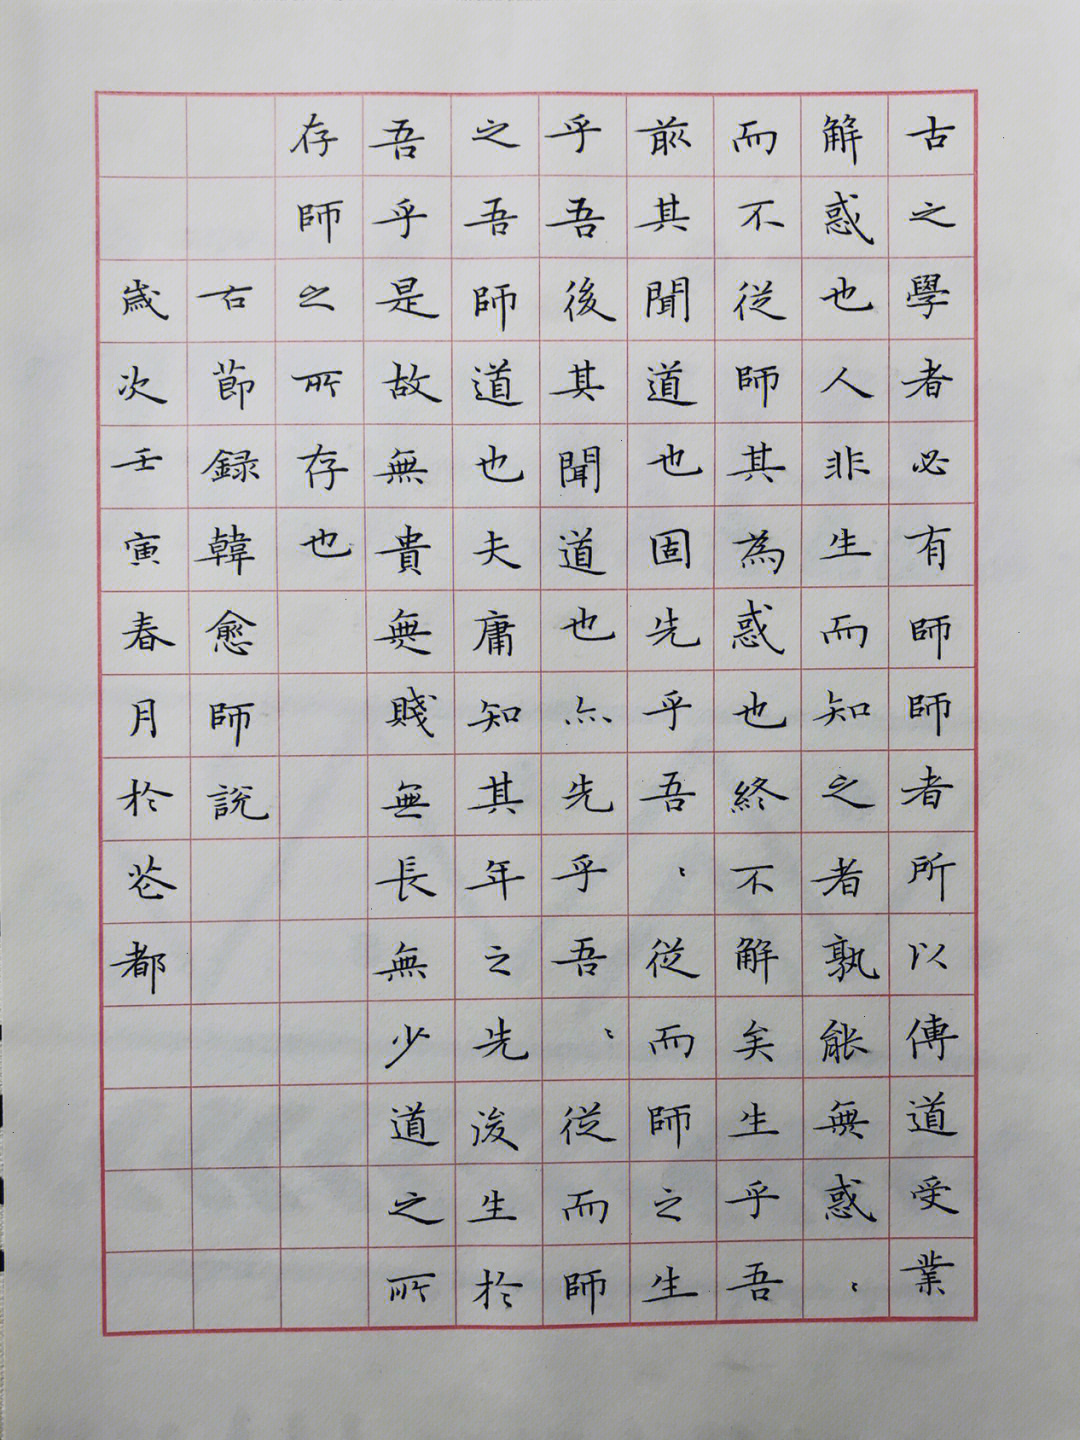 古之學者必有師師者所以傳道受業
解惑也人非生而知之者孰能無惑、
而不從師其為惑也終不解矣生乎吾
前其聞道也固先乎吾、從而師之生
乎吾後其聞道也亦先乎吾、從而師
之吾師道也夫庸知其年之先後生於
吾乎是故無貴無賤無長無少道之所
存師之所存也
右節録韓愈師說
歲次壬寅春月於都